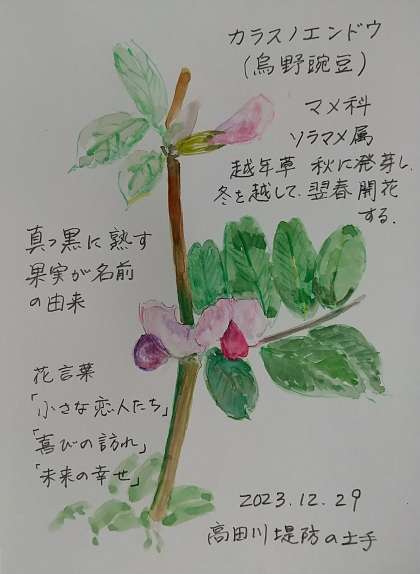 カラスノエンドウ
(烏野豌豆)
マメ科
ソラマメ属
越年草 秋に発芽し、
冬を越して、翌春開花
する。
真っ黒に熟す
果実が名前
の由来
花言葉
「小さな恋人たち」
「喜びの訪れ」
「未来の幸せ」
2023.12.29
高田川堤防の土手